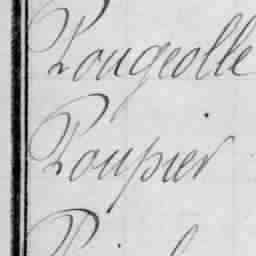 Pougeolle
Poupier